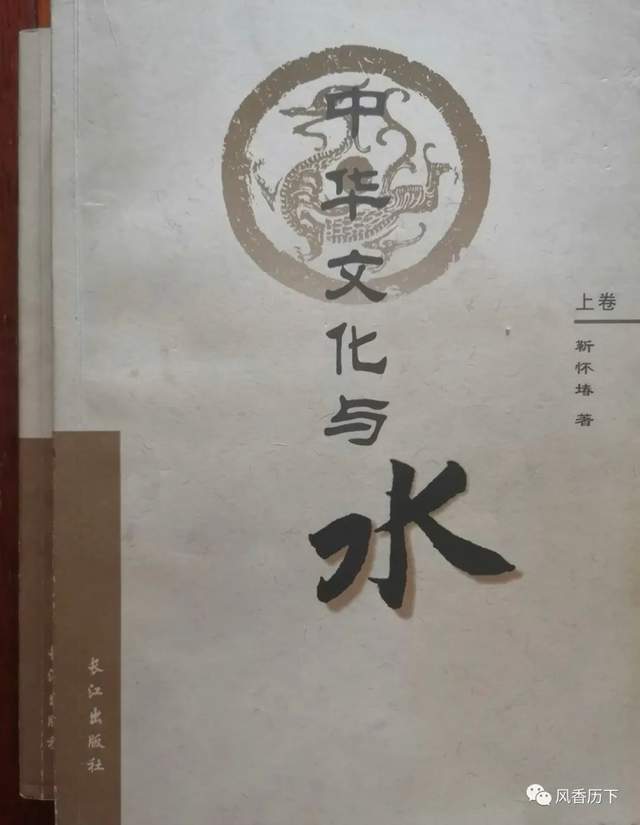 中华文化与
水
上卷
靳怀堾 著
长江出版社
长江出版社
风香历下